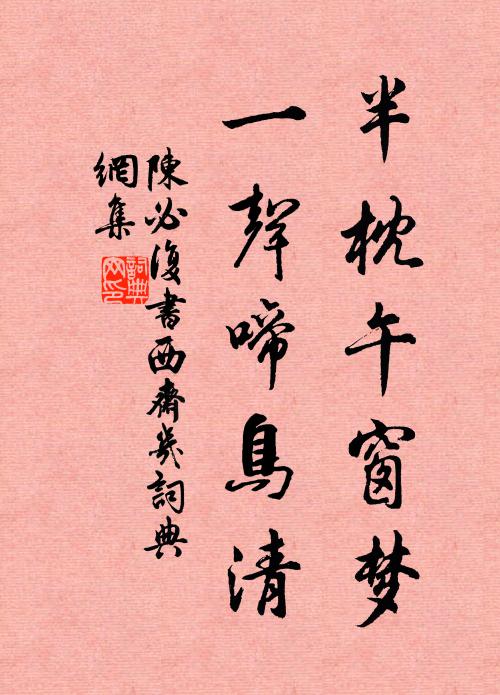 半枕午窗梦
一聲啼鳥清
陳必復書西齋幾詞典
網集
詞典
网印